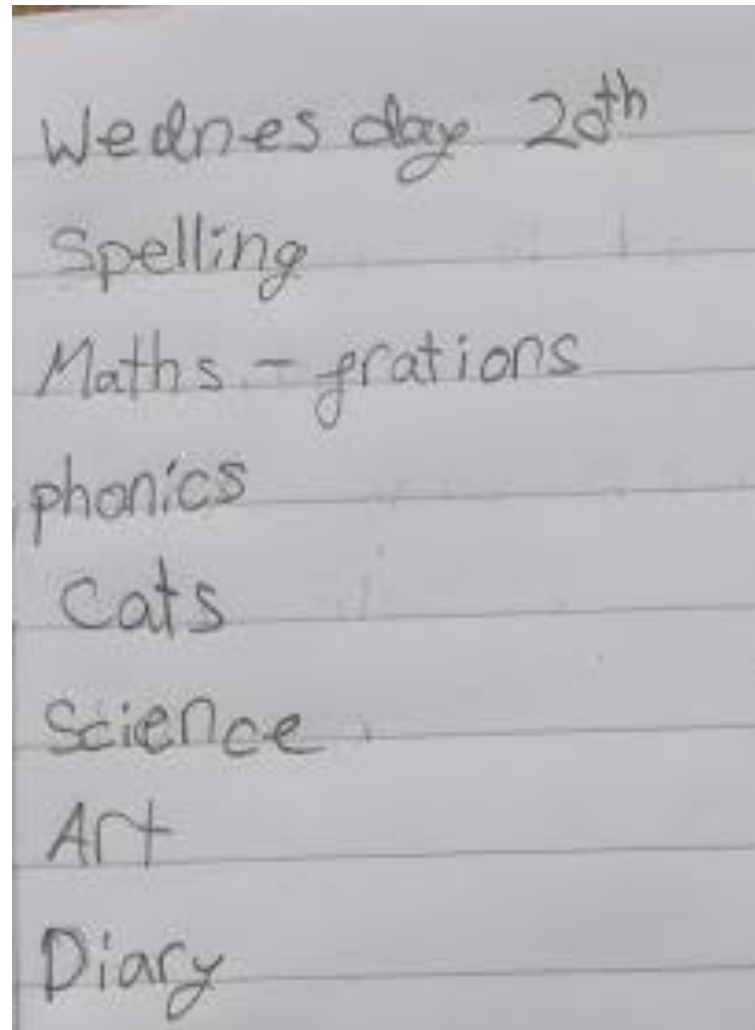 Wednesday 20th
Spelling
Maths - frations
phonics
Cats
Science
Art
Diary